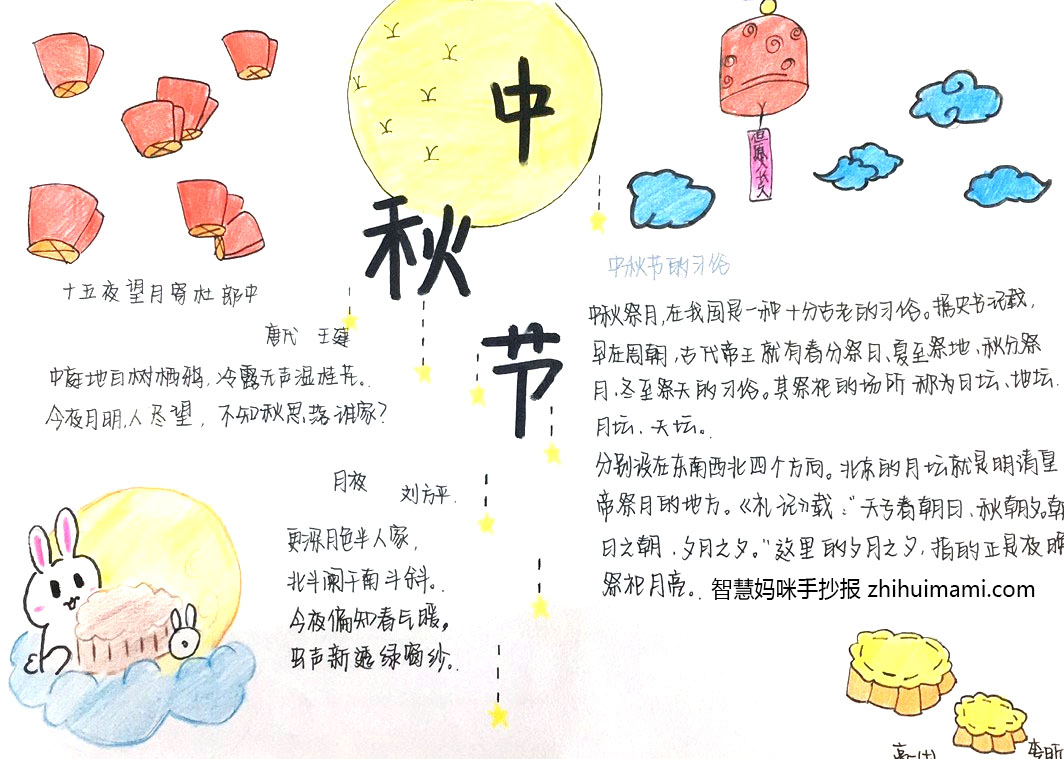 中
秋
节
但愿人长久
十五夜望月寄杜郎中
唐代 王建
中庭地白树栖鸦,冷露无声湿桂花。
今夜月明人尽望,不知秋思落谁家?
月夜
刘方平.
更深月色半人家,
北斗阑干南斗斜。
今夜偏知春气暖,
虫声新透绿窗纱。
中秋节的习俗
中秋祭月,在我国是一种十分古老的习俗。据史书记载,
早在周朝,古代帝王就有春分祭日、夏至祭地、秋分祭
月、冬至祭天的习俗。其祭祀的场所称为日坛、地坛、
月坛、天坛。
分别设在东南西北四个方向。北京的月坛就是明清皇
帝祭月的地方。《礼记》载:“天子春朝日、秋朝夕。朝
日之朝,夕月之夕。”这里的夕月之夕,指的正是夜晚
祭祀月亮。
智慧妈咪手抄报 zhihuimami.com